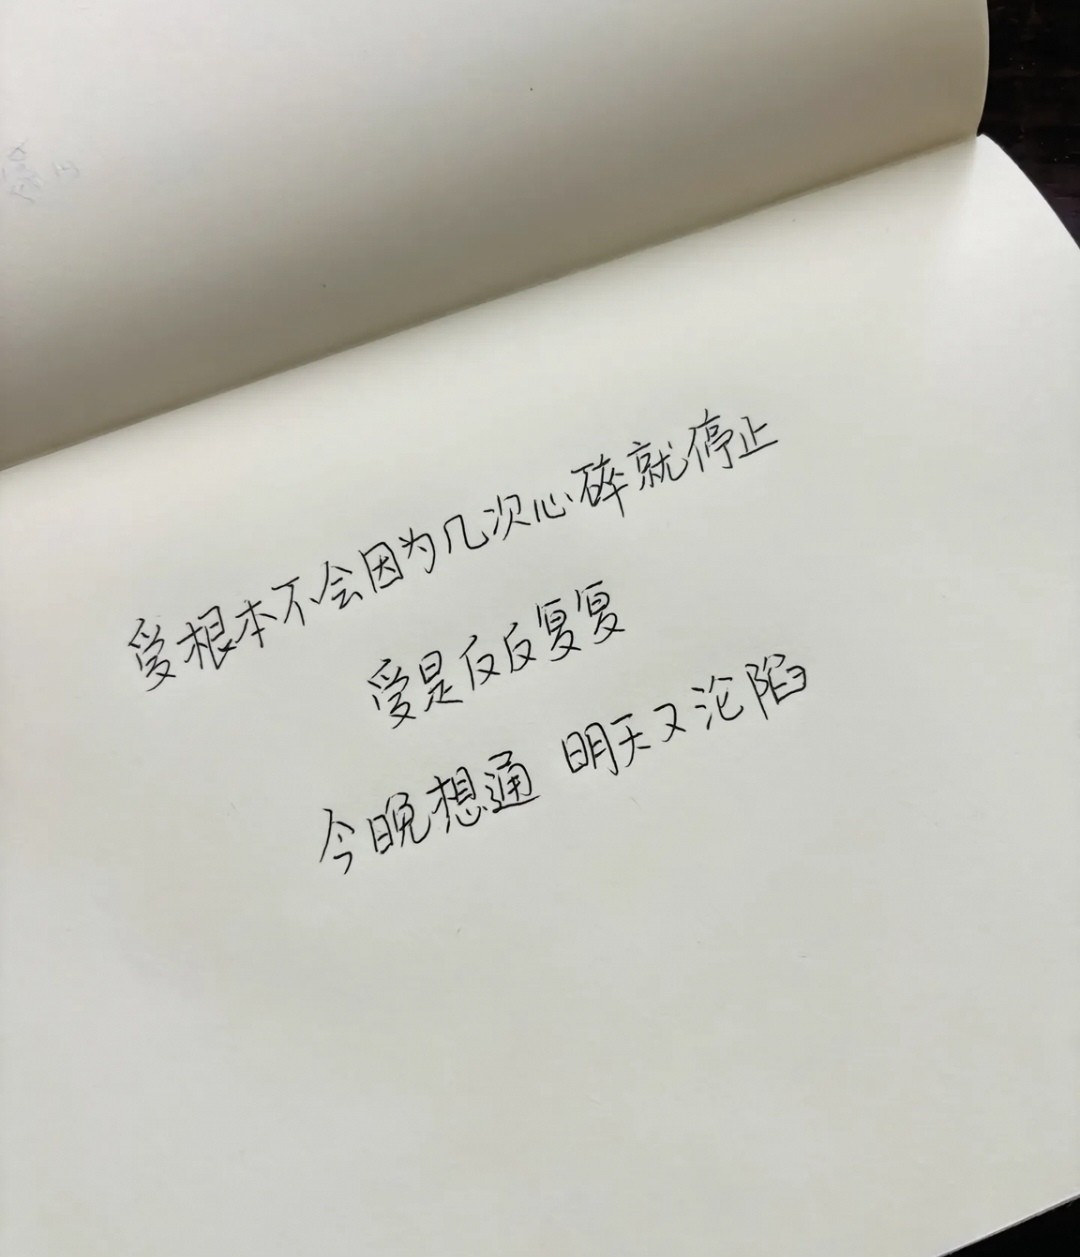 爱根本不会因为几次心碎就停止
爱是反反复复
今晚想通 明天又沦陷